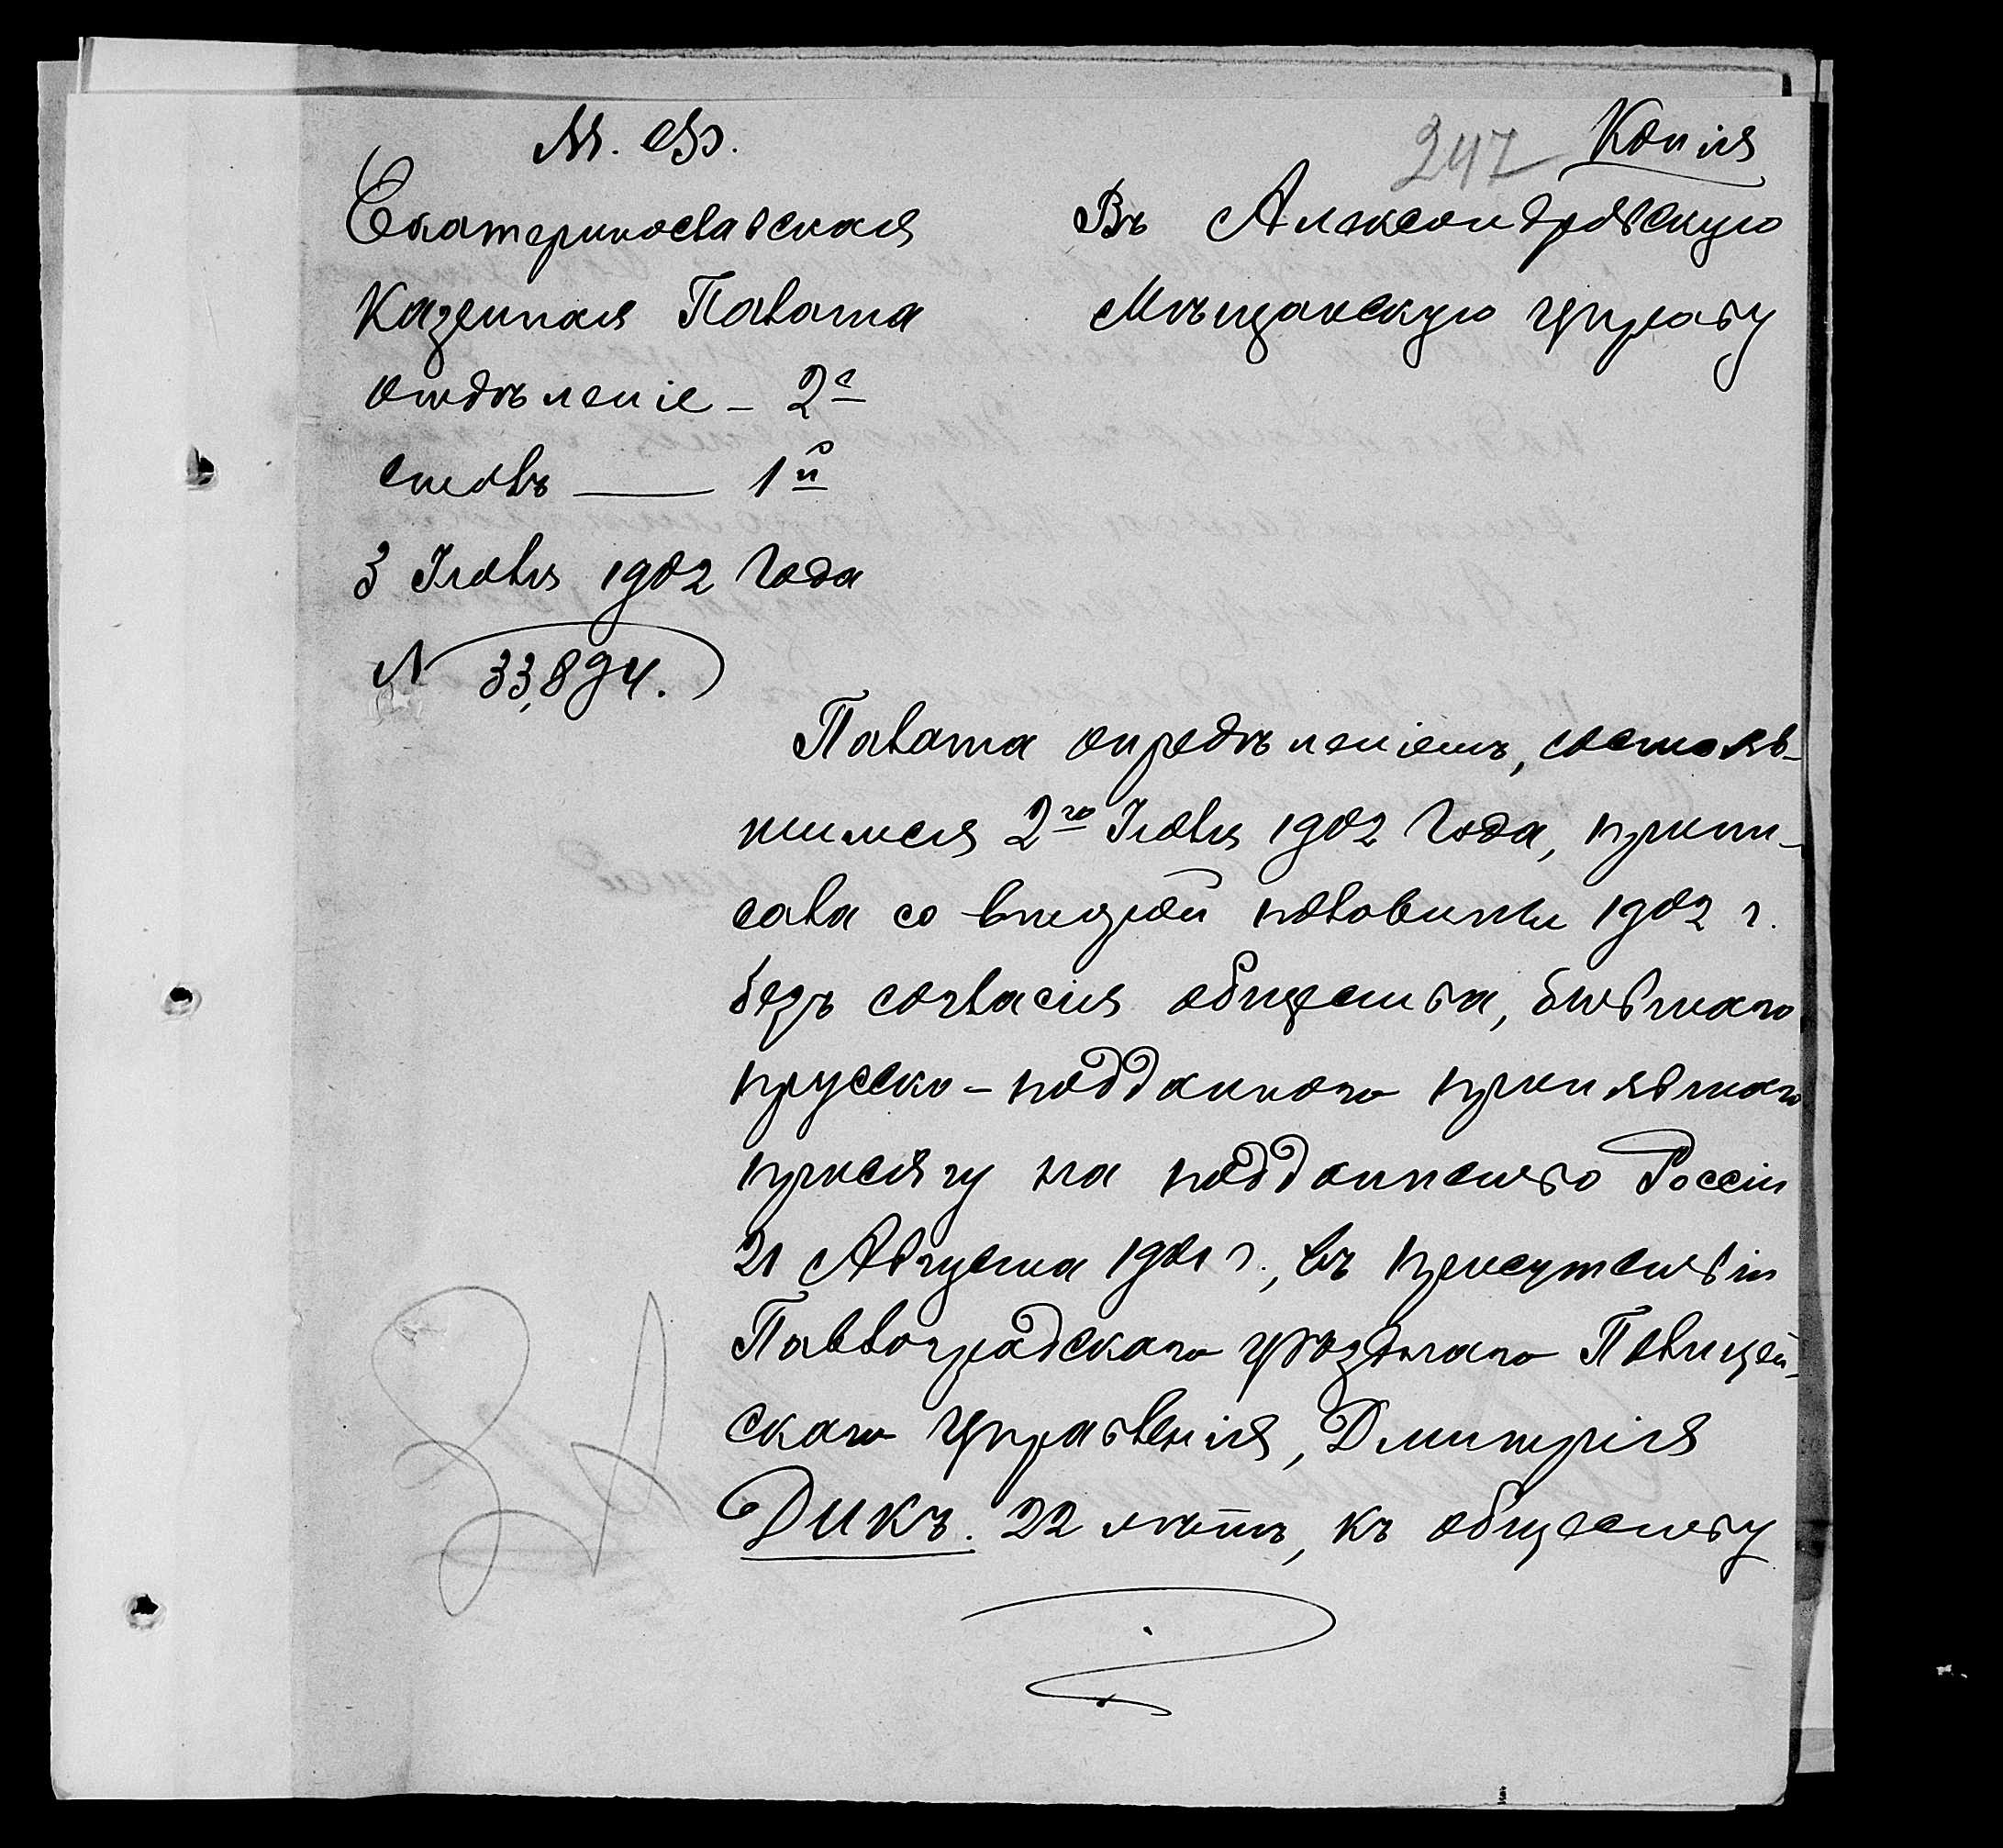 М. Ф.
247 Копія
Екатеринославская
Казенная Палата
отдѣленіе – 2е
столъ — 1й
3 Іюля 1902 года
№ 33,894.
Въ Александровскую
Мѣщанскую Управу
Палата опредѣленіемъ, состояв-
шимся 2го Іюля 1902 года, припи-
сала со второй половины 1902 г.
безъ согласія общества, бывшаго
прусско-подданнаго принявшаго
присягу на подданство Россіи
21 Августа 1901 г., въ присутствіи
Павлоградскаго Уѣзднаго Полицей-
скаго Управленія, Дмитрія
Дикъ. 22 лѣтъ, къ обществу